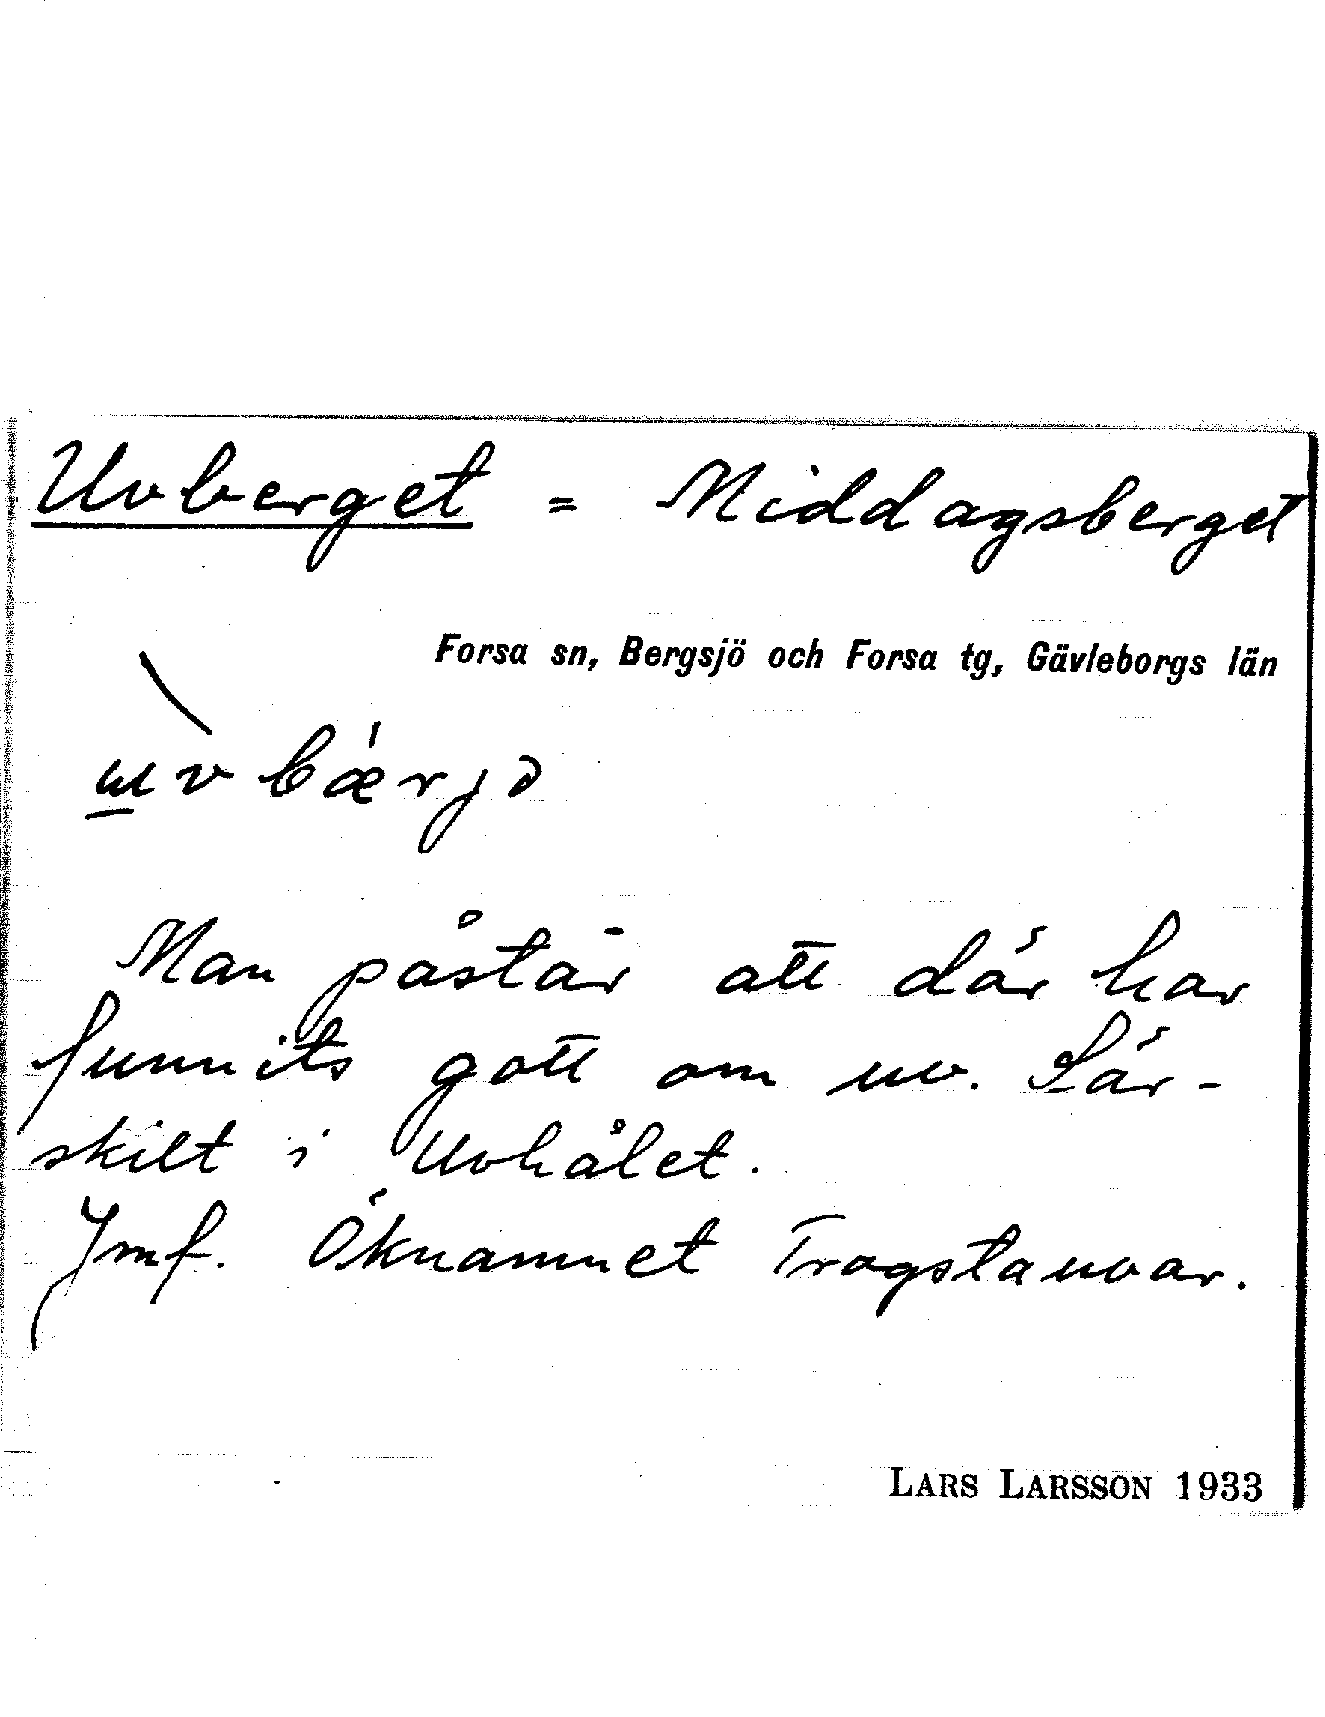 Uvberget = Middagsberget
Forsa sn, Bergsjö och Forsa tg, Gävleborgs län
Man påstår att där har
funnits gott om uv. Sär-
skilt i Uvhålet.
Jmf. Öknamnet Trogstauvar.
LARS LARSSON 1933